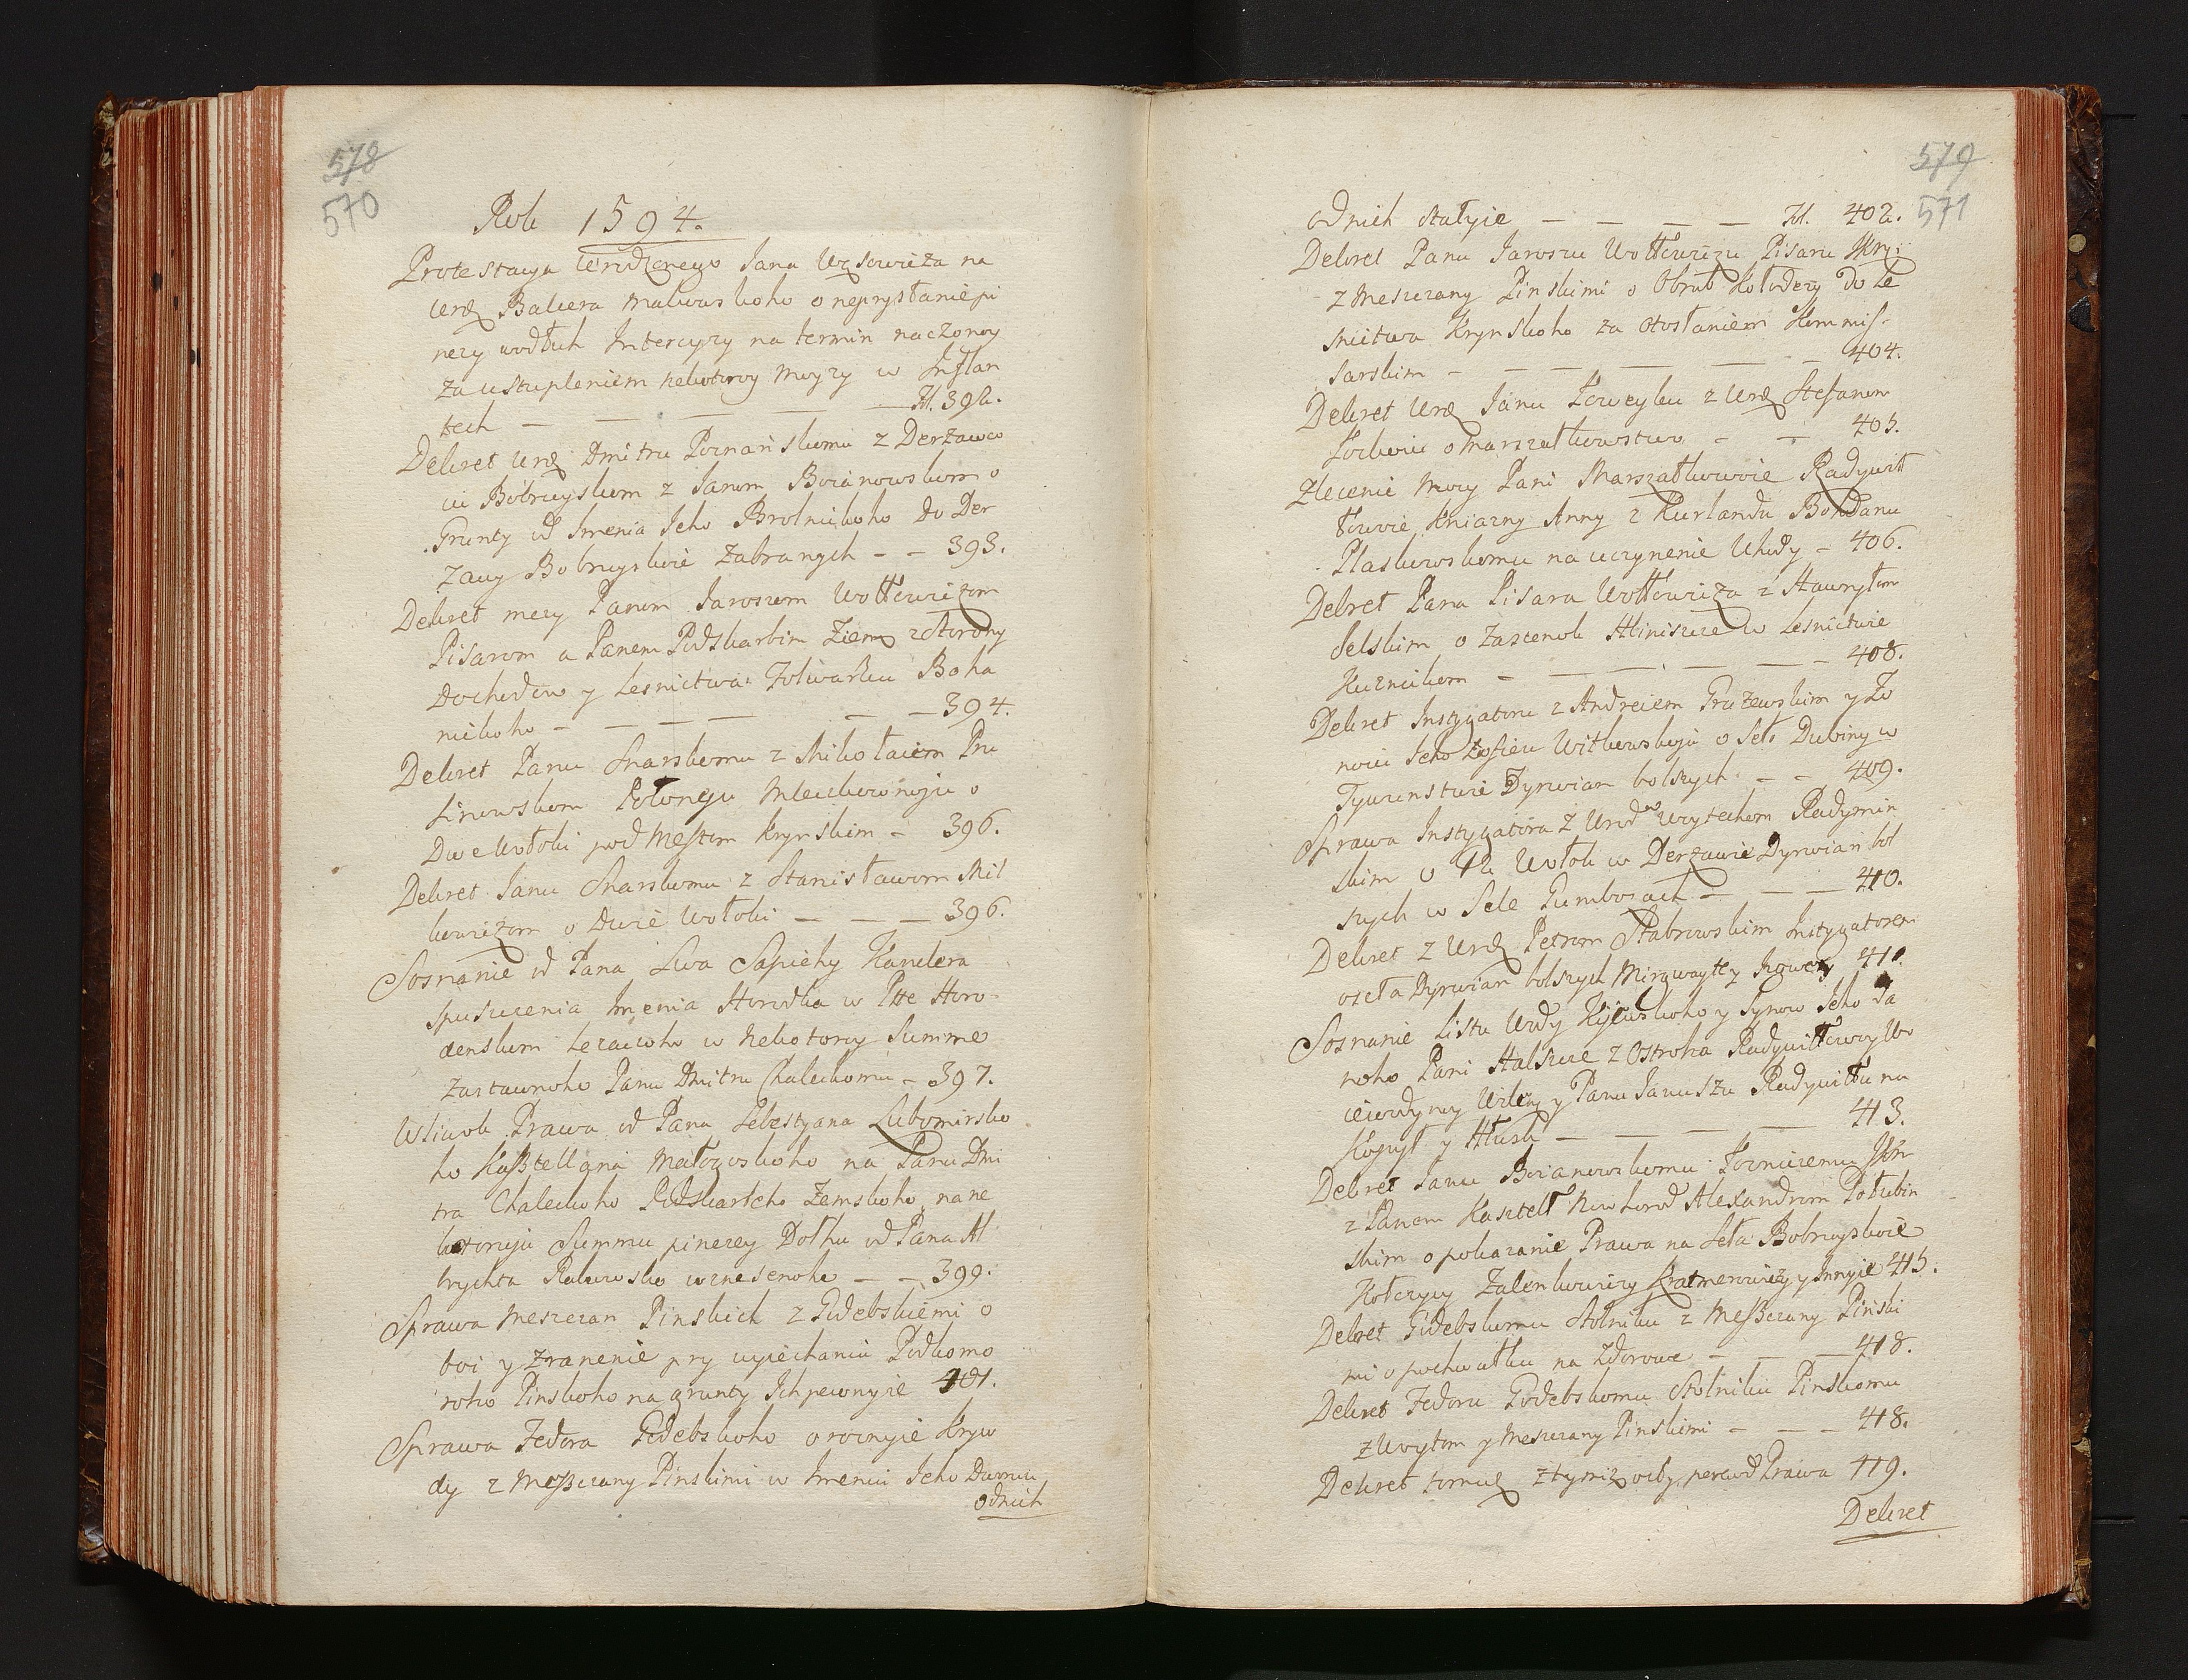 578
570
Rok 1594.
Protestacya Urodzonego Jana Wąsowicza na
Urŏ Balcera Malcuskoho o neprysłanie pi
nezy wodłuh Intercyzy na termin naczonoy
za ustupleniem nekotoroy Moyzy w Inflan
tech — — — — — fol. 392.
Dekret Urŏ Dmitru Poznańskomu z Derżawco
iu Bobruyskom z Janom Boianowskom o
Grunty od Imenia Jeho Brolnickoho do Der
żawy Bobruyskoie Zabranych — — 393.
Dekret mezy Panom Jaroszem Wołłowiczom
Pisarom a Panem Podskarbim Ziem z storony
Dochodow y Lesnictwa Folwarku Boha
nickoho — — — — — — 394.
Dekret Panu Snarskomu z Mikołaiem Pru
sinowskom Połoneju Mleczkownoju o
Dwe Wołoki pod Mestom Krynskim — 396.
Dekret Janu Snarskomu z Stanisławom Mil
kowiczom o Dwie Wołoki — — — 396.
Soznanie od Pana Lwa Sapiehy Kanclera
spuszczenia Imenia Horodka w Ptte Horo-
denskom Lezaczoho w Nekotoroy Summe
Zastawnoho Panu Dmitru Chaleckomu — 397.
Wliwok Prawa od Pana Sebestyana Lubomirsko
ho Kasztellana Małogoskoho na Pana Dmi
tra Chaleckoho Podskarbeho Zemskoho na ne
kotoruju Summu pinezey Dołhu od Pana Al
brychta Rakowsko wznesenoho — — 399.
Sprawa Meszczan Pinskich z Godebskiemi o
boi y Zranenie pry wyiechaniu Podkomo
roho Pinskoho na grunty Ich pewnyie 401.
Sprawa Fedora Godebskoho o roznyie Kryw
dy z Meszczany Pinskimi w Imeniu Jeho
odnich
579
571
odnich stałyie — — — — fol. 402.
Dekret Panu Jaroszu Wołłowiczu Pisaru
z Meszczany Pinskimi o Obrub Kołodezy do Le
snictwa Krynskoho za Otosłaniem Kommis-
sarskim — — — — — — 404.
Dekret Urŏ Janu Kowzyku z Urŏ Stefanom
o Marszałkowstwo — — 405.
Zlecenie Mocy Pani Marszałkowoie Radywił
łowoie Kniazny Anny z Kurlandu Bohdanu
Plaskowskomu na uczynenie Uhody — 406.
Dekret Pana Pisara Wołłowicza z Hawryłom
selskim o Zascenok Hliniszcze w Lesnictwie
Kuznickom — — — — — 408.
Dekret Instygatoru z Andreiem Gruzewskim y Żo
noiu Jeho Zofieiu Witkowskoju o Seło Dubiny w
Tywunstwie Dyrwian bolszych — — 409.
Sprawa Instygatora z Urod Woytechom Radymin
skim o 12 Wołok w Derżawie Dyrwian bol
szych w Sele Gumborach — — — 410.
Dekret z Urŏ Petrom Stabrowskim Instygatorem
o seła Dyrwian bolszych 411.
Soznanie Listu Wdy Kijewskoho y Synow Jeho da
noho Pani Halszce z Ostroha Radywiłłowoy Wo
iewodynoy Wilen y Panu Januszu Radywiłłu na
Kopył y Hłusk — — — — — 413.
Dekret Janu Boianowskomu
z Panem Kasztell Nowhorod Alexandrom Połubin
skim o pokazanie Prawa na Seła Bobruyskoie
Kołczycy Zalenkowiczy Kratmenowiczy y Innyie 415.
Dekret Godebskomu Stolniku z Meszczany Pinski
mi o pochwałku na Zdorowe — — — 418.
Dekret Fedoru Godebskomu Stolniku Pinskomu
z Woytom y Meszczany Pinskimi — — — 418.
Dekret tomuż z tymiż Prawa 419.
Dekret